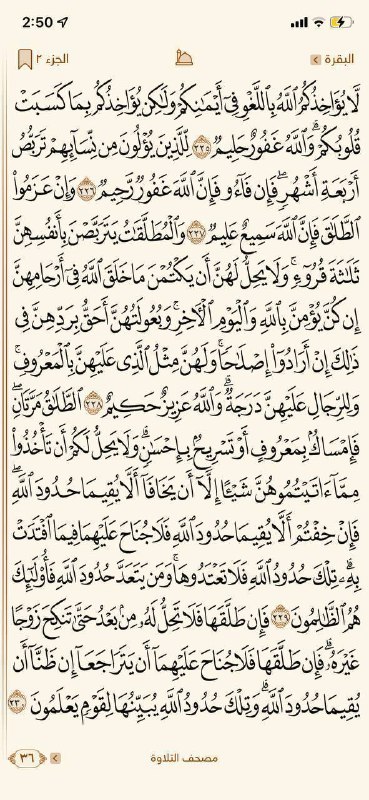 2:50
البقرة الجزء ٢
لَّا يُؤَاخِذُكُمُ ٱللَّهُ بِٱللَّغْوِ فِىٓ أَيْمَٰنِكُمْ وَلَٰكِن يُؤَاخِذُكُم بِمَا كَسَبَتْ
قُلُوبُكُمْ ۗ وَٱللَّهُ غَفُورٌ حَلِيمٌ ٢٢٥ لِّلَّذِينَ يُؤْلُونَ مِن نِّسَآئِهِمْ تَرَبُّصُ
أَرْبَعَةِ أَشْهُرٍ ۖ فَإِن فَآءُو فَإِنَّ ٱللَّهَ غَفُورٌ رَّحِيمٌ ٢٢٦ وَإِنْ عَزَمُوا۟
ٱلطَّلَٰقَ فَإِنَّ ٱللَّهَ سَمِيعٌ عَلِيمٌ ٢٢٧ وَٱلْمُطَلَّقَٰتُ يَتَرَبَّصْنَ بِأَنفُسِهِنَّ
ثَلَٰثَةَ قُرُوٓءٍ ۚ وَلَا يَحِلُّ لَهُنَّ أَن يَكْتُمْنَ مَا خَلَقَ ٱللَّهُ فِىٓ أَرْحَامِهِنَّ
إِن كُنَّ يُؤْمِنَّ بِٱللَّهِ وَٱلْيَوْمِ ٱلْءَاخِرِ ۚ وَبُعُولَتُهُنَّ أَحَقُّ بِرَدِّهِنَّ فِى
ذَٰلِكَ إِنْ أَرَادُوٓا۟ إِصْلَٰحًا ۚ وَلَهُنَّ مِثْلُ ٱلَّذِى عَلَيْهِنَّ بِٱلْمَعْرُوفِ ۚ
وَلِلرِّجَالِ عَلَيْهِنَّ دَرَجَةٌ ۗ وَٱللَّهُ عَزِيزٌ حَكِيمٌ ٢٢٨ ٱلطَّلَٰقُ مَرَّتَانِ ۖ
فَإِمْسَاكٌۢ بِمَعْرُوفٍ أَوْ تَسْرِيحٌۢ بِإِحْسَٰنٍ ۗ وَلَا يَحِلُّ لَكُمْ أَن تَأْخُذُوا۟
مِمَّآ ءَاتَيْتُمُوهُنَّ شَيْـًٔا إِلَّآ أَن يَخَافَآ أَلَّا يُقِيمَا حُدُودَ ٱللَّهِ ۖ
فَإِنْ خِفْتُمْ أَلَّا يُقِيمَا حُدُودَ ٱللَّهِ فَلَا جُنَاحَ عَلَيْهِمَا فِيمَا ٱفْتَدَتْ
بِهِۦ ۗ تِلْكَ حُدُودُ ٱللَّهِ فَلَا تَعْتَدُوهَا ۚ وَمَن يَتَعَدَّ حُدُودَ ٱللَّهِ فَأُو۟لَٰٓئِكَ
هُمُ ٱلظَّٰلِمُونَ ٢٢٩ فَإِن طَلَّقَهَا فَلَا تَحِلُّ لَهُۥ مِنۢ بَعْدُ حَتَّىٰ تَنكِحَ زَوْجًا
غَيْرَهُۥ ۗ فَإِن طَلَّقَهَا فَلَا جُنَاحَ عَلَيْهِمَآ أَن يَتَرَاجَعَآ إِن ظَنَّآ أَن
يُقِيمَا حُدُودَ ٱللَّهِ ۗ وَتِلْكَ حُدُودُ ٱللَّهِ يُبَيِّنُهَا لِقَوْمٍ يَعْلَمُونَ ٢٣٠
مصحف التلاوة ٣٦